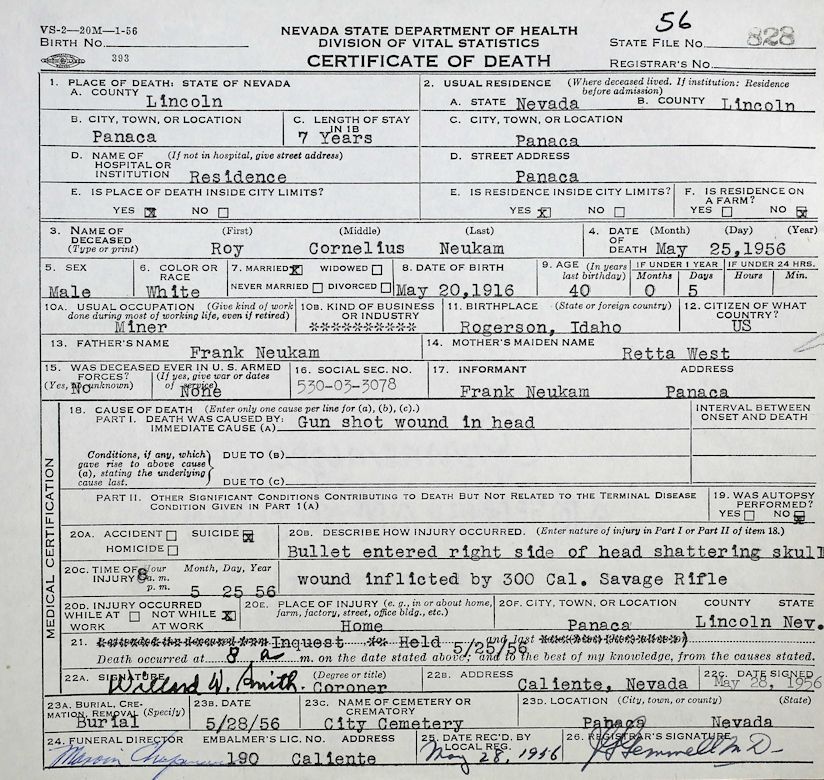 VS-2—20M—1-56
BIRTH NO.
393
NEVADA STATE DEPARTMENT OF HEALTH
DIVISION OF VITAL STATISTICS
CERTIFICATE OF DEATH
56
STATE FILE NO. 828
REGISTRAR'S NO.
1. PLACE OF DEATH: STATE OF NEVADA
A. COUNTY
Lincoln
2. USUAL RESIDENCE (Where deceased lived. If institution: Residence before admission)
A. STATE Nevada B. COUNTY Lincoln
B. CITY, TOWN, OR LOCATION
Panaca
C. LENGTH OF STAY IN 1B
7 Years
C. CITY, TOWN, OR LOCATION
Panaca
D. NAME OF HOSPITAL OR INSTITUTION (If not in hospital, give street address)
Residence
D. STREET ADDRESS
Panaca
E. IS PLACE OF DEATH INSIDE CITY LIMITS?
YES X NO
E. IS RESIDENCE INSIDE CITY LIMITS?
YES X NO
F. IS RESIDENCE ON A FARM?
YES NO X
3. NAME OF DECEASED (Type or print)
(First) (Middle) (Last)
Roy Cornelius Neukam
4. DATE OF DEATH (Month) (Day) (Year)
May 25,1956
5. SEX
Male
6. COLOR OR RACE
White
7. MARRIED X WIDOWED
NEVER MARRIED DIVORCED
8. DATE OF BIRTH
May 20,1916
9. AGE (In years last birthday)
40
IF UNDER 1 YEAR
Months Days
0 5
IF UNDER 24 HRS.
Hours Min.
10A. USUAL OCCUPATION (Give kind of work done during most of working life, even if retired)
Miner
10B. KIND OF BUSINESS OR INDUSTRY
**********
11. BIRTHPLACE (State or foreign country)
Rogerson, Idaho
12. CITIZEN OF WHAT COUNTRY?
US
13. FATHER'S NAME
Frank Neukam
14. MOTHER'S MAIDEN NAME
Retta West
15. WAS DECEASED EVER IN U. S. ARMED FORCES?
(Yes, no, unknown) (If yes, give war or dates of service)
No None
16. SOCIAL SEC. NO.
530-03-3078
17. INFORMANT ADDRESS
Frank Neukam Panaca
MEDICAL CERTIFICATION
18. CAUSE OF DEATH (Enter only one cause per line for (a), (b), (c).)
PART I. DEATH WAS CAUSED BY:
IMMEDIATE CAUSE (A) Gun shot wound in head
INTERVAL BETWEEN ONSET AND DEATH
Conditions, if any, which gave rise to above cause (a), stating the underlying cause last.
DUE TO (B)
DUE TO (C)
PART II. OTHER SIGNIFICANT CONDITIONS CONTRIBUTING TO DEATH BUT NOT RELATED TO THE TERMINAL DISEASE CONDITION GIVEN IN PART 1(A)
19. WAS AUTOPSY PERFORMED?
YES NO X
20A. ACCIDENT SUICIDE X
HOMICIDE
20B. DESCRIBE HOW INJURY OCCURRED. (Enter nature of injury in Part I or Part II of item 18.)
Bullet entered right side of head shattering skull
20C. TIME OF INJURY Hour a. m. p. m. Month, Day, Year
5 25 56
wound inflicted by 300 Cal. Savage Rifle
20D. INJURY OCCURRED
WHILE AT WORK NOT WHILE AT WORK X
20E. PLACE OF INJURY (e. g., in or about home, farm, factory, street, office bldg., etc.)
Home
20F. CITY, TOWN, OR LOCATION COUNTY STATE
Panaca Lincoln Nev.
21. Inquest Held 5/25/56 and last
Death occurred at 8 a m. on the date stated above; and to the best of my knowledge, from the causes stated.
22A. SIGNATURE (Degree or title)
Willard W. Smith. Coroner
22B. ADDRESS
Caliente, Nevada
22C. DATE SIGNED
May 28, 1956
23A. BURIAL, CREMATION, REMOVAL (Specify)
Burial
23B. DATE
5/28/56
23C. NAME OF CEMETERY OR CREMATORY
City Cemetery
23D. LOCATION (City, town, or county) (State)
Panaca Nevada
24. FUNERAL DIRECTOR EMBALMER'S LIC. NO. ADDRESS
Marvin Chapman 190 Caliente
25. DATE REC'D. BY LOCAL REG.
May 28, 1956
26. REGISTRAR'S SIGNATURE
M D